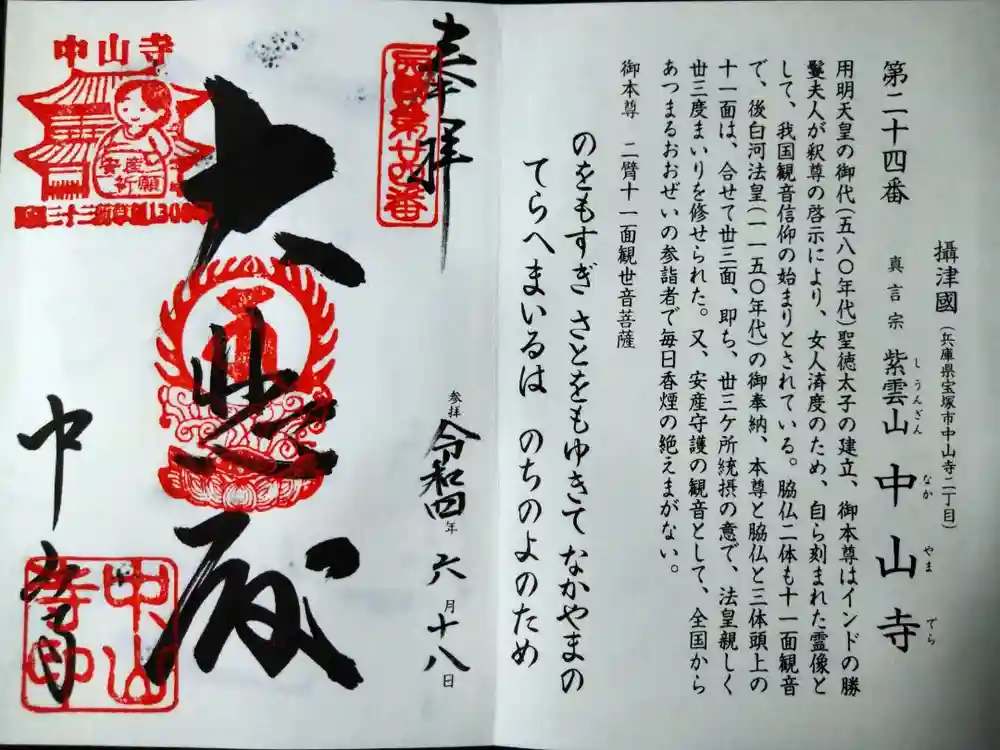 第二十四番
攝津國（兵庫県宝塚市中山寺二丁目）
真言宗 紫雲山 中山寺
しうんざん なか やま でら
用明天皇の御代（五八〇年代）聖徳太子の建立、御本尊はインドの勝
鬘夫人が釈尊の啓示により、女人済度のため、自ら刻まれた霊像と
して、我国観音信仰の始まりとされている。脇仏二体も十一面観音
で、後白河法皇（一一五〇年代）の御奉納、本尊と脇仏と三体頭上の
十一面は、合せて丗三面、即ち、丗三ケ所統摂の意で、法皇親しく
丗三度まいりを修せられた。又、安産守護の観音として、全国から
あつまるおおぜいの参詣者で毎日香煙の絶えまがない。
御本尊 二臂十一面観世音菩薩
のをもすぎ さとをもゆきて なかやまの
てらへまいるは のちのよのため
奉拝
西國第廿四番
参拝 令和四年 六月十八日
大悲殿
中山寺
安産
祈願
中山寺
中山
寺印